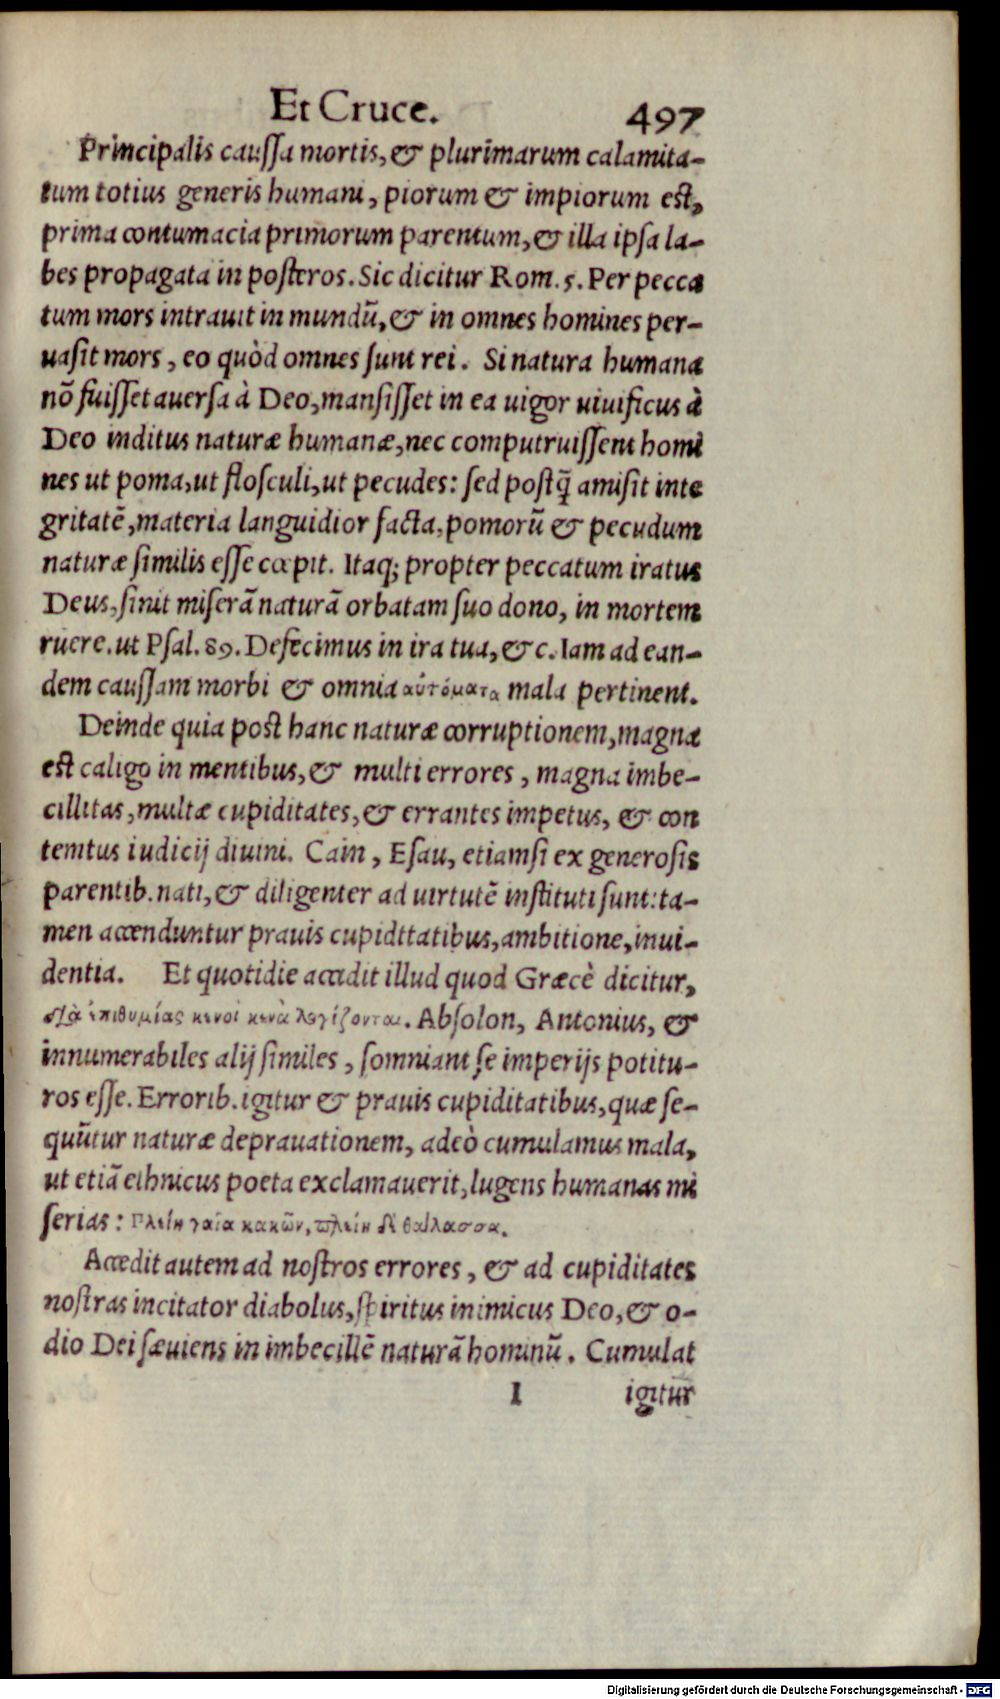 Et Cruce. 497
Principalis caussa mortis, & plurimarum calamita-
tum totius generis humani, piorum & impiorum est,
prima contumacia primorum parentum, & illa ipsa la-
bes propagata in posteros. Sic dicitur Rom. 5. Per pecca
tum mors intrauit in mundũ, & in omnes homines per-
uasit mors, eo quòd omnes sunt rei. Si natura humana
nõ fuisset auersa à Deo, mansisset in ea uigor uiuificus à
Deo inditus naturæ humanæ, nec computruissent homi
nes ut poma, ut flosculi, ut pecudes: sed postq̃ amisit inte
gritatẽ, materia languidior facta, pomorũ & pecudum
naturæ similis esse cœpit. Itaq; propter peccatum iratus
Deus, sinit miserã naturã orbatam suo dono, in mortem
ruere. ut Psal. 89. Defecimus in ira tua, & c. Iam ad ean-
dem caussam morbi & omnia αὐτόματα mala pertinent.
Deinde quia post hanc naturæ corruptionem, magna
est caligo in mentibus, & multi errores, magna imbe-
cillitas, multæ cupiditates, & errantes impetus, & con
temtus iudicij diuini. Cain, Esau, etiamsi ex generosis
parentib. nati, & diligenter ad uirtutẽ instituti sunt: ta-
men accenduntur prauis cupidttatibus, ambitione, inui-
dentia. Et quotidie accidit illud quod Græcè dicitur,
διὰ ἐπιθυμίας κενοὶ κενὰ λογίζονται. Absolon, Antonius, &
innumerabiles alij similes, somniant se imperijs potitu-
ros esse. Errorib. igitur & prauis cupiditatibus, quæ se-
quũtur naturæ deprauationem, adeò cumulamus mala,
ut etiã ethnicus poeta exclamauerit, lugens humanas mi
serias: Πλείη γαῖα κακῶν, πλείη δὲ θάλασσα.
Accedit autem ad nostros errores, & ad cupiditates
nostras incitator diabolus, spiritus inimicus Deo, & o-
dio Dei sæuiens in imbecillẽ naturã hominũ. Cumulat
I igitur
Digitalisierung gefördert durch die Deutsche Forschungsgemeinschaft - DFG